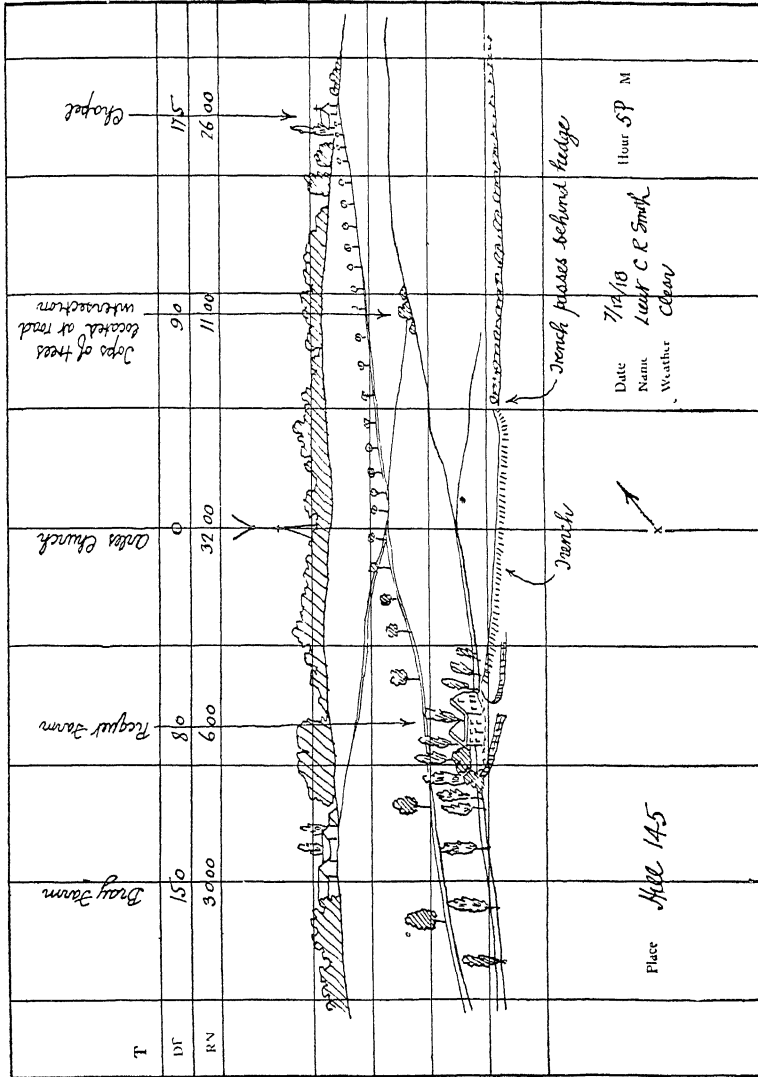 T Bray Farm Farm Arles Church Tops of trees
located at road
intersection Chapel
DF 150 80 0 90 175
RN 3000 600 3200 1100 2600
Trench
Trench passes behind hedge
Place Hill 145
Date 7/12/18 Hour 5P M
Name Lieut C R Smith
Weather Clear
X